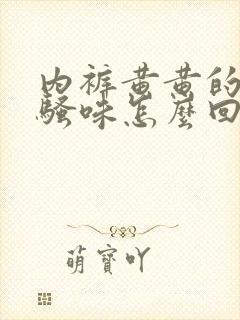 内裤黄黄的
骚味怎麼回
萌寶吖